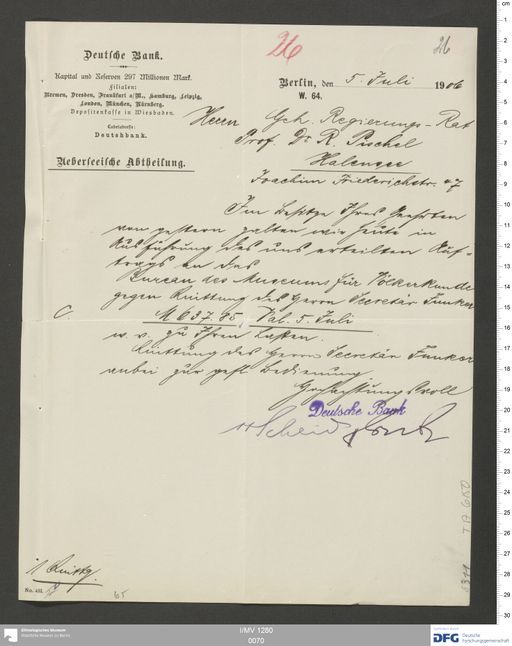 26
26
Deutsche Bank.
Kapital und Reserven 297 Millionen Mark.
Filialen:
Bremen, Dresden, Frankfurt a/M., Hamburg, Leipzig,
London, München, Nürnberg.
Depositenkasse in Wiesbaden.
Cabeladresse:
Deutschbank.
Ueberseeische Abtheilung.
Berlin, den 5. Juli 1906
W. 64.
Herrn Geh. Regierungs-Rat
Prof. Dr R. Pischel
Halensee
Joachim Friedrichstr. 47
Im Besitze Ihres Geehrten
von gestern zahlten wir heute in
Ausführung des uns erteilten Auf-
trags an das
Bureau des Museums für Völkerkunde
gegen Quittung des Herrn Secretär Funker
C. M 637.85, Val. 5. Juli
w. v. zu Ihren Lasten.
Quittung des Herrn Secretär Funker
anbei zur gefl. Bedienung.
Hochachtungsvoll
Deutsche Bank
1 Quittg.
65
I/MV 1280
0070
Ethnologisches Museum
Staatliche Museen zu Berlin
DFG Deutsche
Forschungsgemeinschaft